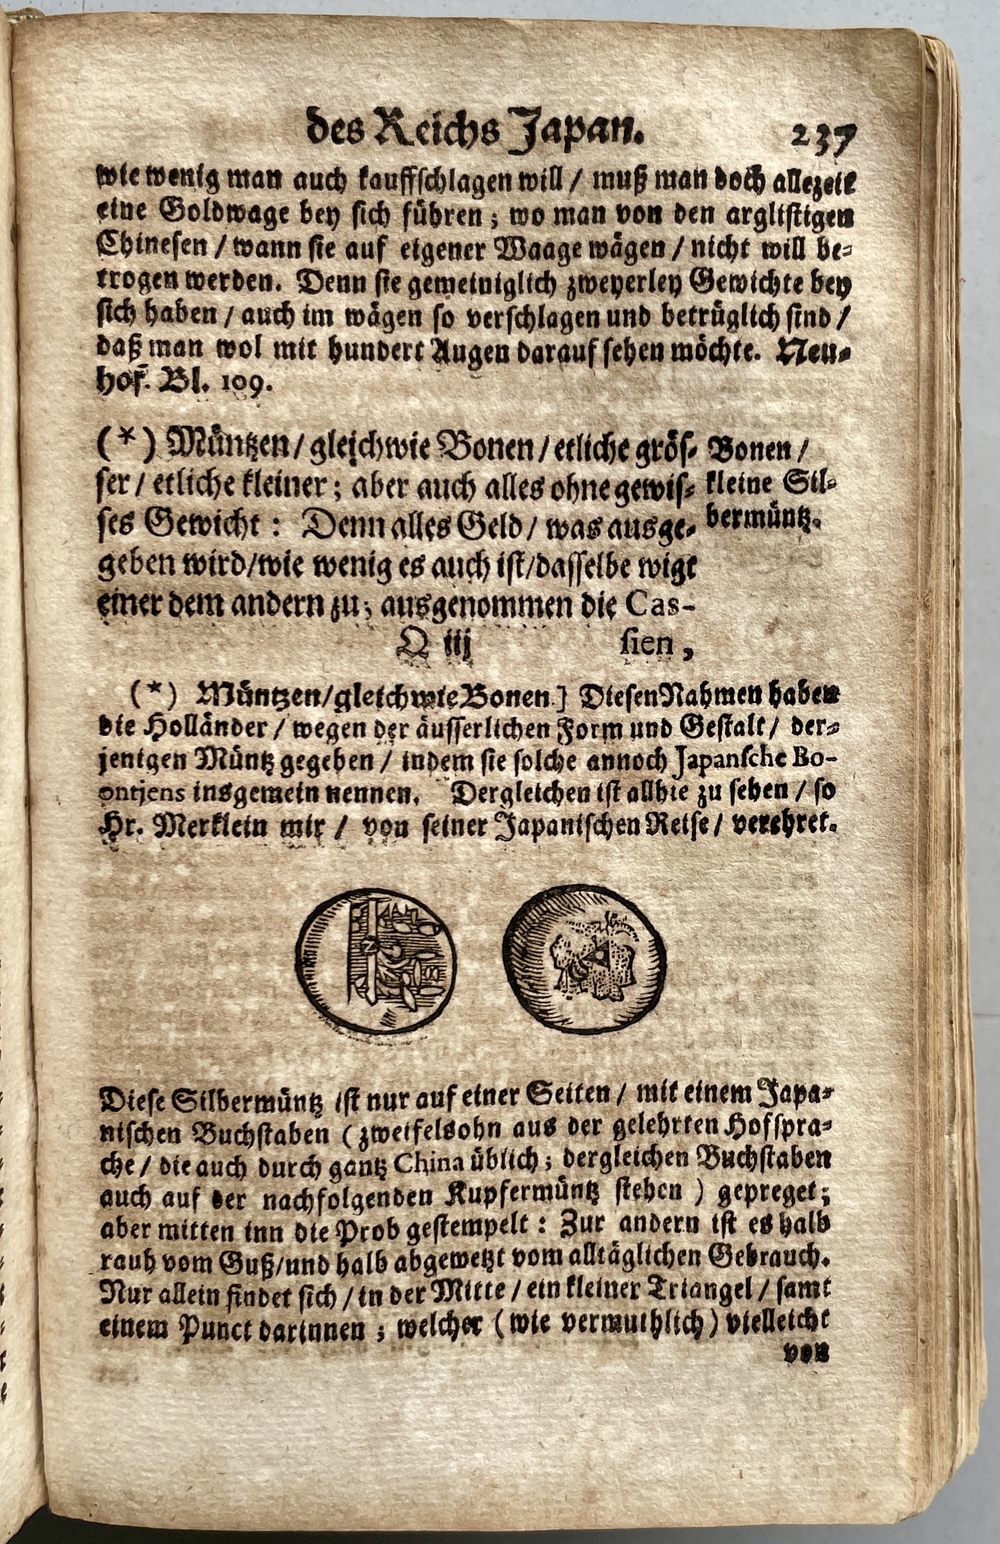 des Reichs Japan. 237
wie wenig man auch kauffschlagen will / muß man doch allezeit
eine Goldwage bey sich führen ; wo man von den arglistigen
Chinesen / wann sie auf eigener Waage wägen / nicht will be-
trogen werden. Denn sie gemeiniglich zweyerley Gewichte bey
sich haben / auch im wägen so verschlagen und betrüglich sind /
daß man wol mit hundert Augen darauf sehen möchte. Neu-
hof. Bl. 109.
(*) Müntzen / gleichwie Bonen / etliche grös-
ser / etliche kleiner ; aber auch alles ohne gewis-
ses Gewicht : Denn alles Geld / was ausge-
geben wird/wie wenig es auch ist/dasselbe wigt
einer dem andern zu ; ausgenommen die Cas-
Bonen /
kleine Sil-
bermüntz.
Q iij sien ,
(*) Müntzen/gleichwie Bonen.] Diesen Nahmen haben
die Holländer / wegen der äusserlichen Form und Gestalt / der-
jenigen Müntz gegeben / indem sie solche annoch Japansche Bo-
ontjens insgemein nennen. Dergleichen ist allhie zu sehen / so
Hr. Merklein mir / von seiner Japanischen Reise / verehret.
Diese Silbermüntz ist nur auf einer Seiten / mit einem Japa-
nischen Buchstaben ( zweifelsohn aus der gelehrten Hofspra-
che / die auch durch gantz China üblich ; dergleichen Buchstaben
auch auf der nachfolgenden Kupfermüntz stehen ) gepreget ;
aber mitten inn die Prob gestempelt : Zur andern ist es halb
rauh vom Guß/und halb abgewetzt vom alltäglichen Gebrauch.
Nur allein findet sich / in der Mitte / ein kleiner Triangel / samt
einem Punct darinnen ; welcher ( wie vermuthlich ) vielleicht
von